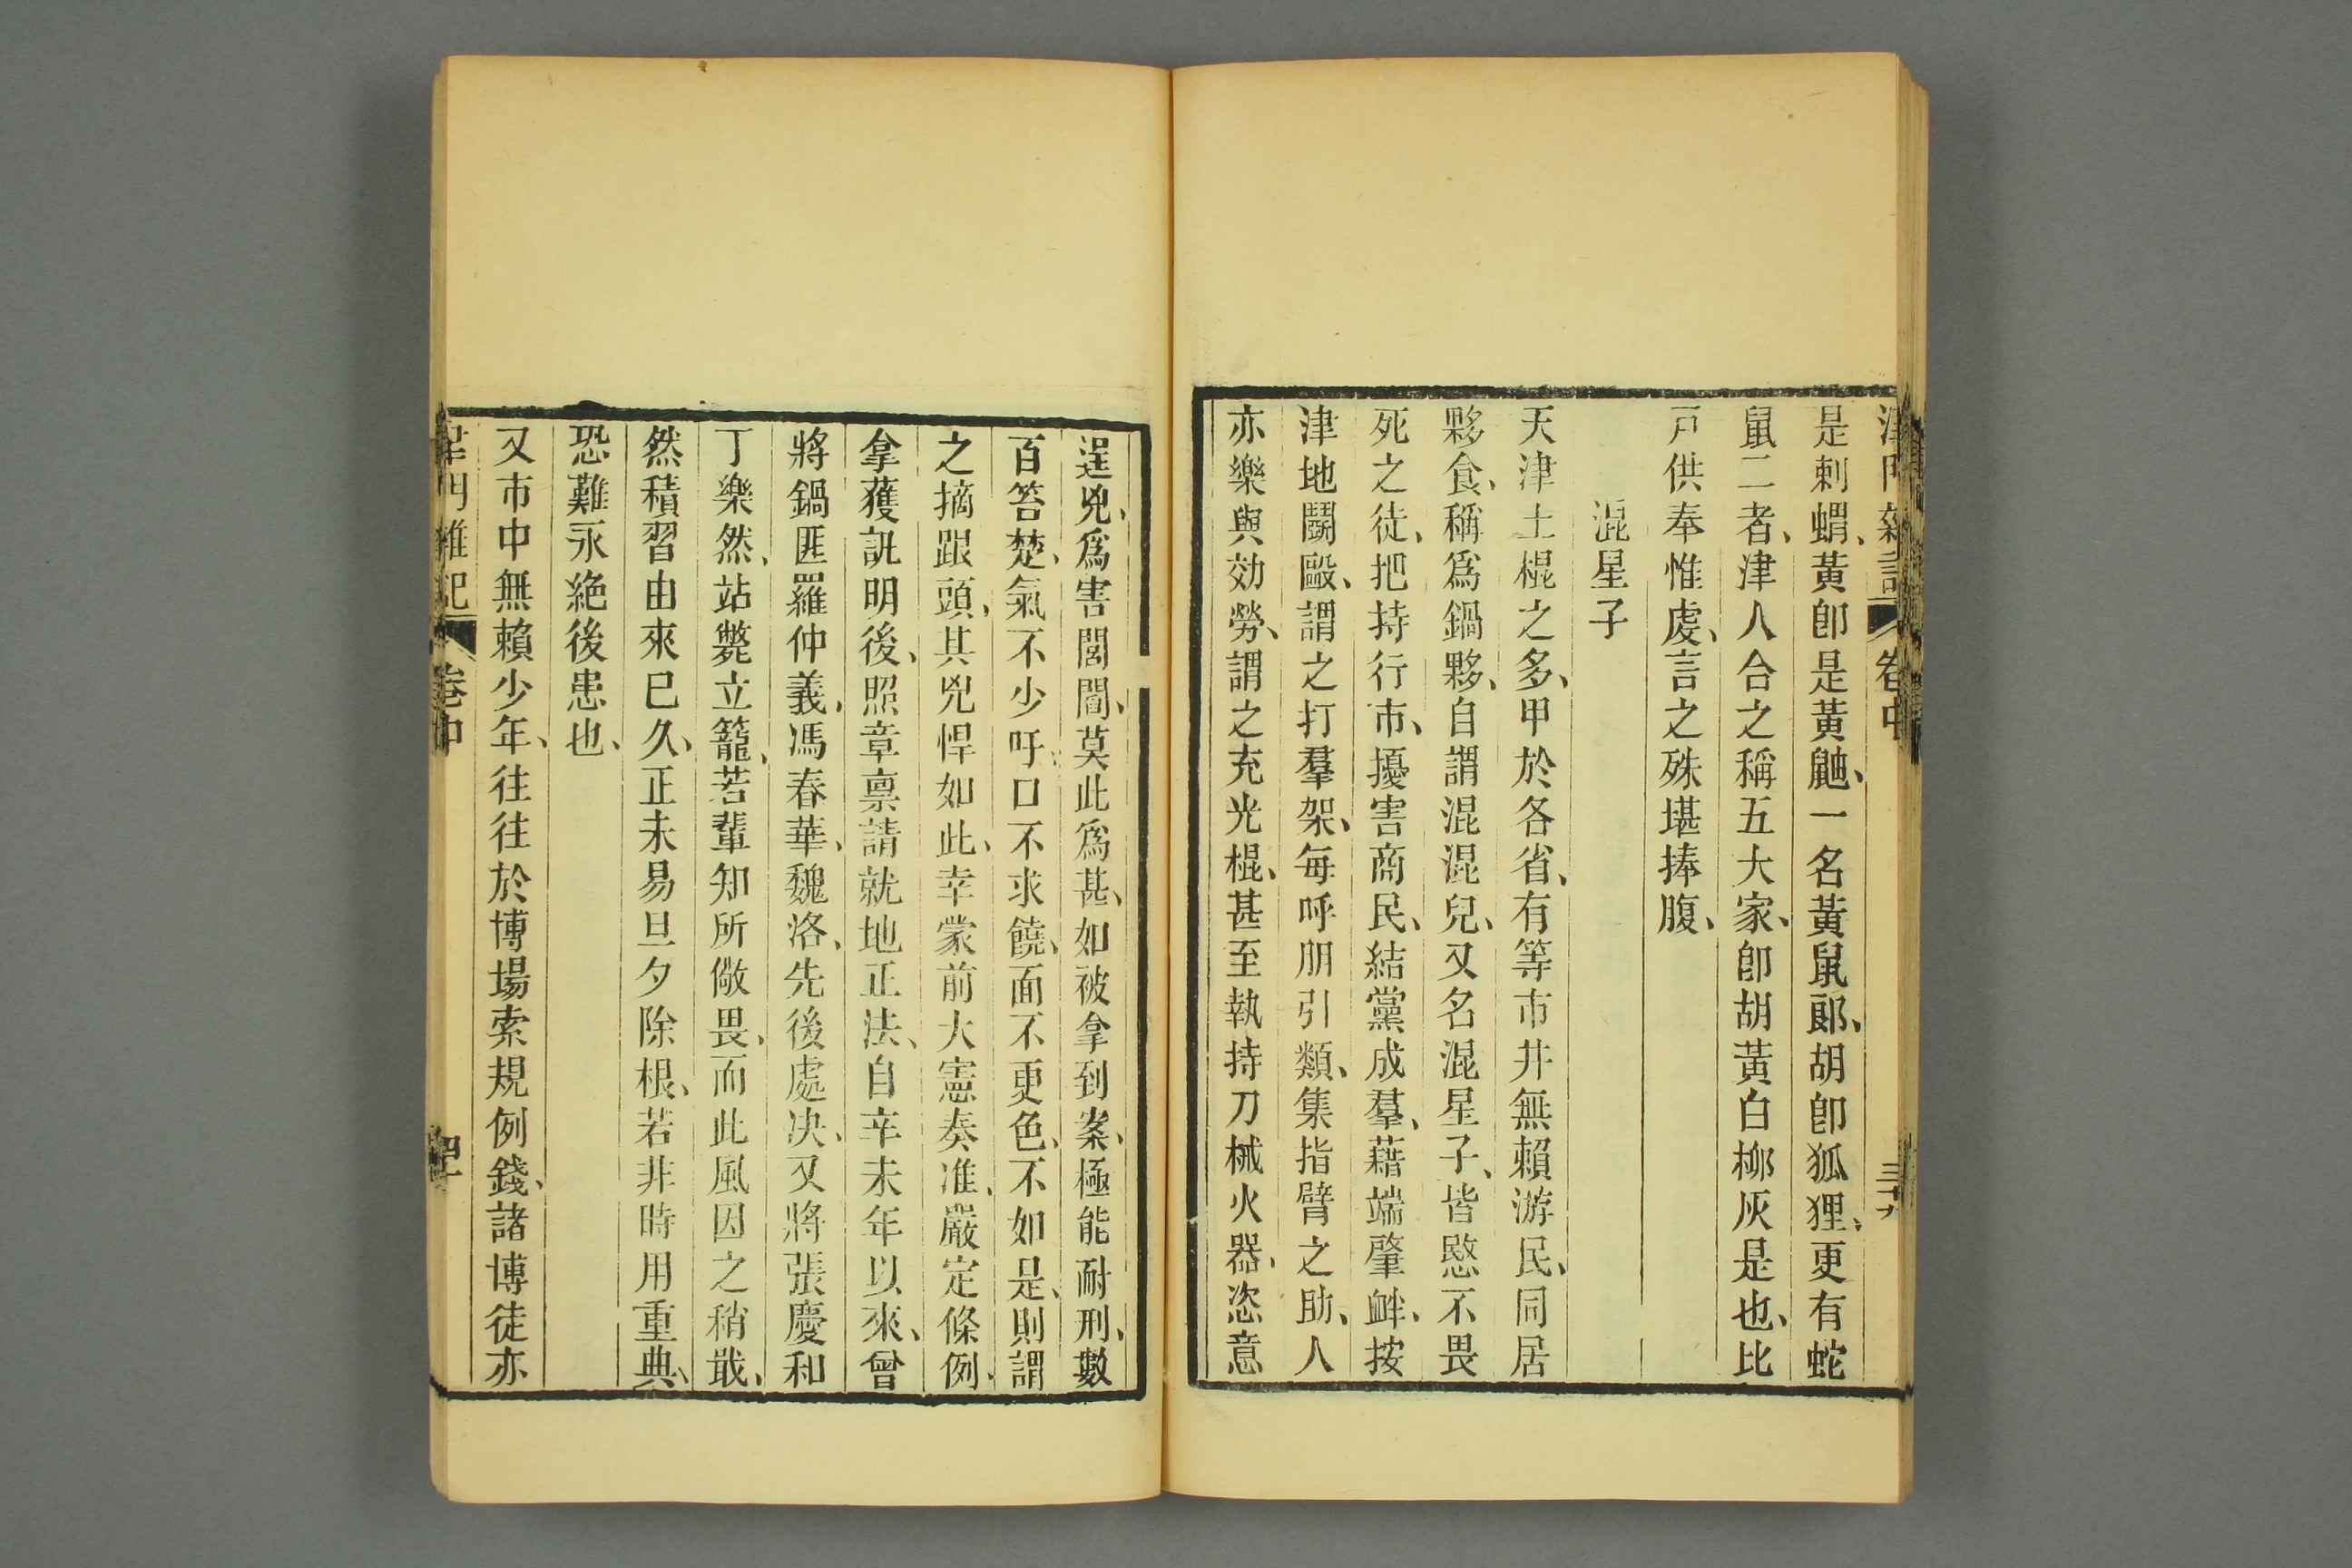 津門雜記 卷中 三十九
是刺蝟、黃卽是黃鼬、一名黃鼠郞、胡卽狐狸、更有蛇
鼠二者、津人合之稱五大家、卽胡黃白柳灰是也、比
戸供奉惟虔、言之殊堪捧腹、
混星子
天津土棍之多、甲於各省、有等市井無賴游民、同居
夥食、稱爲鍋夥、自謂混混兒、又名混星子、皆愍不畏
死之徒、把持行市、擾害商民、結黨成羣、藉端肇衅、按
津地鬬毆、謂之打羣架、每呼朋引類、集指臂之助、人
亦樂與効勞、謂之充光棍、甚至執持刀械火器、恣意
逞兇、爲害閭閻、莫此爲甚、如被拿到案、極能耐刑、數
百笞楚、氣不少吁、口不求饒、面不更色、不如是、則謂
之摘跟頭、其兇悍如此、幸蒙前大憲奏准、嚴定條例、
拿獲訊明後、照章禀請就地正法、自辛未年以來、曾
將鍋匪羅仲義、馮春華、魏洛、先後處决、又將張慶和
丁樂然、站斃立籠、若輩知所儆畏、而此風因之稍戢、
然積習由來已久、正未易旦夕除根、若非時用重典、
恐難永絕後患也、
又市中無賴少年、往往於博場索規例錢、諸博徒亦
津門雜記 卷中 四十